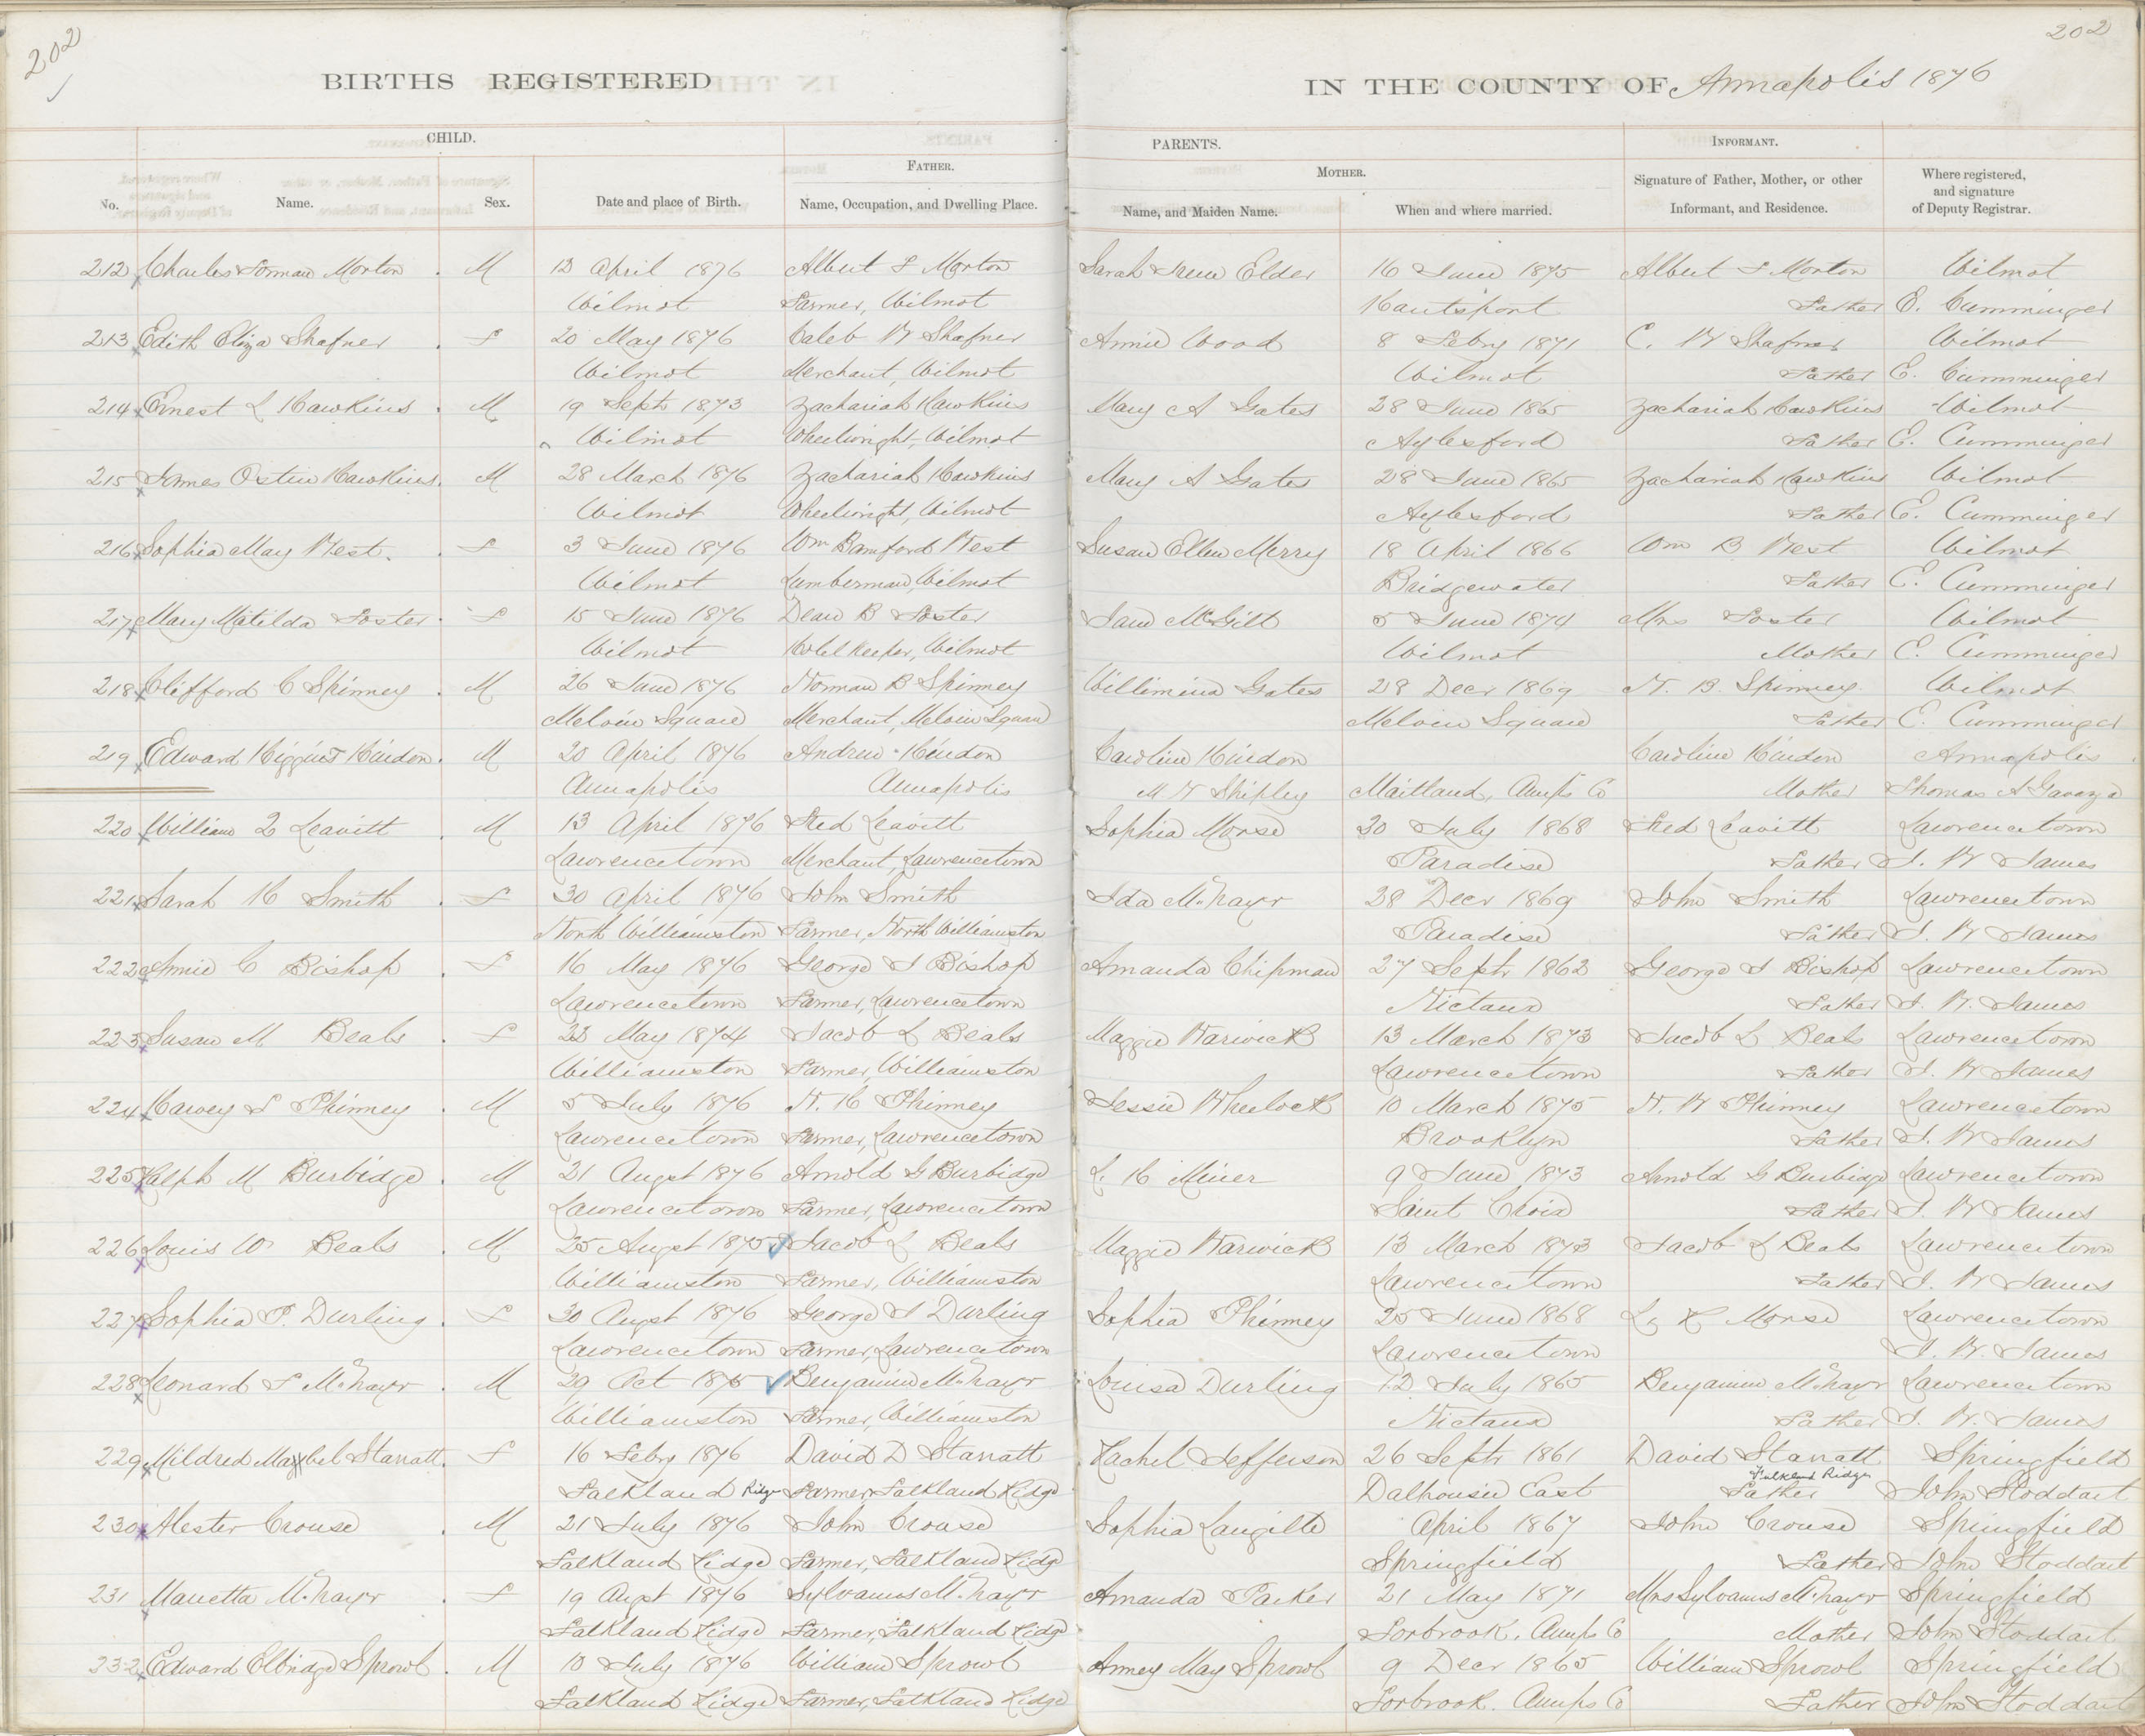 202
202
BIRTHS REGISTERED
IN THE COUNTY OF Annapolis 1876
CHILD.
PARENTS.
INFORMANT.
FATHER.
MOTHER.
No. Name. Sex. Date and place of Birth. Name, Occupation, and Dwelling Place. Name, and Maiden Name. When and where married. Signature of Father, Mother, or other Informant, and Residence. Where registered, and signature of Deputy Registrar.
212 Charles Norman Morton M 12 April 1876 Albert F Morton Sarah Irene Elder 16 June 1875 Albert F Morton Wilmot
Wilmot Farmer, Wilmot Hantsport Father E. Cumminger
213 Edith Eliza Shafner F 20 May 1876 Caleb W Shafner Annie Wood 8 Febry 1871 C. W Shafner Wilmot
Wilmot Merchant, Wilmot Wilmot Father E. Cumminger
214 Ernest L Hawkins M 19 Sept 1873 Zachariah Hawkins Mary A Gates 28 June 1865 Zachariah Hawkins Wilmot
Wilmot Wheelwright, Wilmot Aylesford Father E. Cumminger
215 James Ostin Hawkins M 28 March 1876 Zachariah Hawkins Mary A Gates 28 June 1865 Zachariah Hawkins Wilmot
Wilmot Wheelwright, Wilmot Aylesford Father E. Cumminger
216 Sophia May West. F 3 June 1876 Wm Bamford West Susan Ellen Merry 18 April 1866 Wm B West Wilmot
Wilmot Lumberman, Wilmot Bridgewater Father E. Cumminger
217 Mary Matilda Foster F 15 June 1876 Dean B Foster Jane McGill 5 June 1874 Mrs Foster Wilmot
Wilmot Hotel Keeper, Wilmot Wilmot Mother E. Cumminger
218 Clifford C Spinney M 26 June 1876 Norman B Spinney Willimina Gates 28 Decr 1869 N. B. Spinney Wilmot
Melvin Square Merchant, Melvin Square Melvin Square Father E. Cumminger
219 Edward Higgins Hindon M 20 April 1876 Andrew Hindon Caroline Hindon Caroline Hindon Annapolis
Annapolis Annapolis M N Shipley Maitland, Annps Co Mother Thomas A
220 William L Leavitt M 13 April 1876 Fred Leavitt Sophia Morse 30 July 1868 Fred Leavitt Lawrencetown
Lawrencetown Merchant, Lawrencetown Paradise Father J. W James
221 Sarah H Smith F 30 April 1876 John Smith Ida McNayr 28 Decr 1869 John Smith Lawrencetown
North Williamston Farmer, North Williamston Paradise Father J. W James
222 Annie C Bishop F 16 May 1876 George J Bishop Amanda Chipman 27 Septr 1862 George J Bishop Lawrencetown
Lawrencetown Farmer, Lawrencetown Nictaux Father J. W. James
223 Susan M Beals F 22 May 1874 Jacob L Beals Maggie Warwick 13 March 1873 Jacob L Beals Lawrencetown
Williamston Farmer, Williamston Lawrencetown Father J. W James
224 Harvey F Phinney M 5 July 1876 N. H Phinney Jessie Wheelock 10 March 1875 N. W Phinney Lawrencetown
Lawrencetown Farmer, Lawrencetown Brooklyn Father J. W James
225 Ralph M Burbidge M 21 Augst 1876 Arnold G Burbidge L. H Miner 9 June 1873 Arnold G Burbidge Lawrencetown
Lawrencetown Farmer, Lawrencetown Saint Croix Father J. W James
226 Louis W Beals M 25 Augst 1875 Jacob L Beals Maggie Warwick 13 March 1873 Jacob L Beals Lawrencetown
Williamston Farmer, Williamston Lawrencetown Father J. W James
227 Sophia P. Durling F 30 Augst 1876 George J Durling Sophia Phinney 25 June 1868 L. Morse Lawrencetown
Lawrencetown Farmer, Lawrencetown Lawrencetown J. W. James
228 Leonard F McNayr M 29 Oct 1875 Benjamin McNayr Louisa Durling 12 July 1865 Benjamin McNayr Lawrencetown
Williamston Farmer, Williamston Nictaux Father J. W. James
229 Mildred Maybel Starratt F 16 Febry 1876 David D Starratt Rachel Jefferson 26 Septr 1861 David Starratt Springfield
Falkland Ridge Farmer, Falkland Ridge Dalhousie East Falkland Ridge Father John Stoddart
230 Alester Crouse M 21 July 1876 John Crouse Sophia Langille April 1867 John Crouse Springfield
Falkland Ridge Farmer, Falkland Ridge Springfield Father John Stoddart
231 Maretta McNayr F 19 Augst 1876 Sylvanus McNayr Amanda Parker 21 May 1871 Mrs Sylvanus McNayr Springfield
Falkland Ridge Farmer, Falkland Ridge Torbrook. Annps Co Mother John Stoddart
232 Edward Elbridge Sprowl M 10 July 1876 William Sprowl Anney May Sprowl 9 Decr 1865 William Sprowl Springfield
Falkland Ridge Farmer, Falkland Ridge Torbrook. Annps Co Father John Stoddart